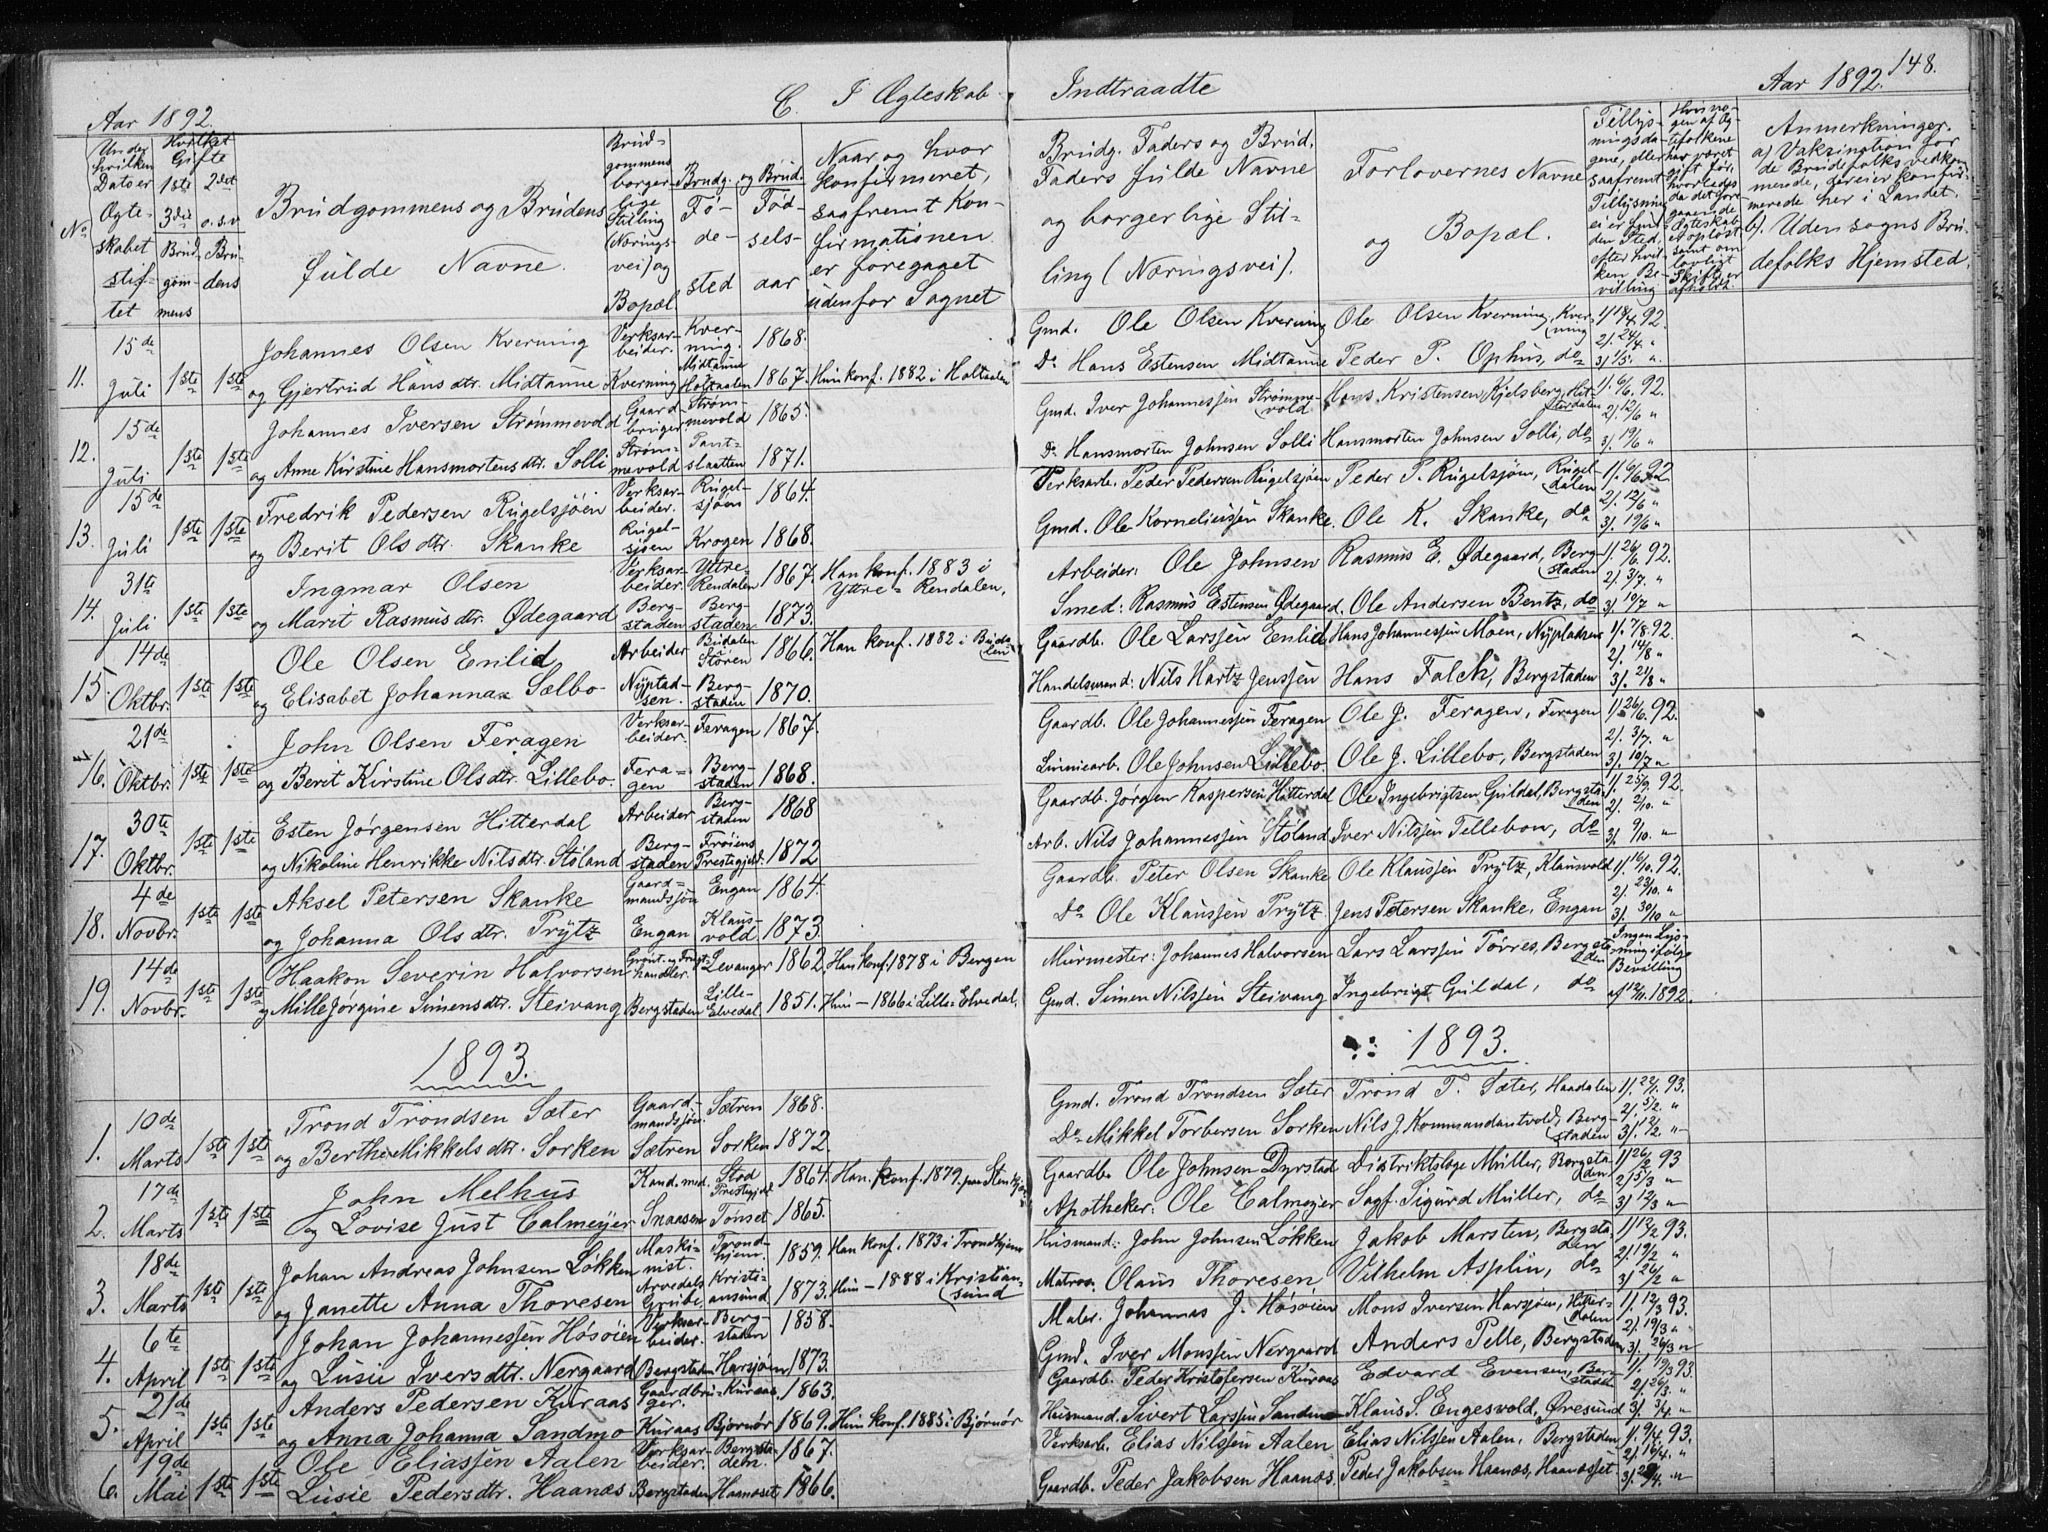 148.
Aar 1892. C. I Ægteskab Indtraadte Aar 1892.
No
Under hvilken Dato er Ægteskabet stiftet
Hvilket Gifte 1ste 2det 3die o.s.v. Brudgommens Brudens
Brudgommens og Brudens fulde Navne.
Brudgommens borgerlige Stilling (Næringsvei) og Bopæl.
Brudg. og Brud. Fødested
Fødselsaar
Naar og hvor konfirmeret, saafremt Konfirmationen er foregaaet udenfor Sognet
Brudg. Faders og Brud. Faders fulde Navne og borgerlige Stilling (Næringsvei).
Forlovernes Navne og Bopæl.
Tillysningsdagene, eller saafremt Tillysning ei er funden Sted, efter hvilken Bevilling
Anmerkninger. a) Vaksination for de Brudefolks vedkommende, der ei er konfirmerede her i Landet. b) Udensogns Brudefolks Hjemsted.
11. 15de Juli 1ste 1ste Johannes Olsen Kverning Verksarbeider. Kverning. 1868. Gmd. Ole Olsen Kverning Ole Olsen Kverning, Kverning 1/. 18/4 92. 2/. 24/4 "
og Gjertrud Hansdtr. Midtaune Kverning Midtaune Holtaalen 1867. Hun konf. 1882 i Holtaalen Do Hans Estensen Midtaune Peder P. Ophus, do 3/. 1/5. ".
12. 15de Juli 1ste 1ste Johannes Iversen Strømmevold Gaardbruger Strømmevold 1865. Gmd. Iver Johannesjen Strømmevold Hans Kristensen Kjelsberg, Hitterdalen 1/. 6/6. 92. 2/. 12/6 "
og Anne Kirstine Hansmortensdtr. Solli Strømmevold Tamtslaatten 1871. Do. Hansmorten Johnsen Solli Hansmorten Johnsen Solli, do 3/. 19/6 "
13. 15de Juli 1ste 1ste Fredrik Pedersen Rugelsjøen Verksarbeider. Rugelsjøen 1864. Verksarb. Peder Pedersen Rugelsjøen Peder P. Rugelsjøen, Rugeldalen 1/. 6/6 92 2/. 12/6 "
og Berit Olsdtr. Skanke Rugelsjøen Krogen 1868. Gmd. Ole Korneliusjen Skanke. Ole K. Skanke, do 3/. 19/6 "
14. 31te Juli 1ste 1ste Ingmar Olsen Verksarbeider. Yttre-Rendalen 1867. Han konf. 1883 i Yttre-Rendalen. Arbeider: Ole Johnsen Rasmus E. Ødegaard, Bergstaden 1/. 26/6. 92. 2/. 3/7. "
og Marit Rasmusdtr. Ødegaard Bergstaden Bergstaden 1873. Smed: Rasmus Estensen Ødegaard. Ole Andersen Bentz, do 3/. 10/7 "
15. 14de Oktbr. 1ste 1ste Ole Olsen Enlid Arbeider Budalen Støren 1866. Han konf. 1882 i Budalen Gaardb. Ole Larsjen Enlid Hans Johannesjen Moen, Nypladsen 1/. 7/8. 92. 2/. 14/8 "
og Elisabet Johanna Sælbo Nypladsen. Bergstaden 1870. Handelsmand: Nils Hartz Jensjen Hans Falch, Bergstaden 3/. 21/8 "
16. 21de Oktbr. 1ste 1ste John Olsen Feragen Verksarbeider. Feragen 1867. Gaardb. Ole Johannesjen Feragen Ole J. Feragen, Feragen 1/. 26/6. 92. 2/. 3/7. "
og Berit Kirstine Olsdtr. Lillebo. Feragen Bergstaden 1868. Linniearb. Ole Johnsen Lillebo. Ole J. Lillebo, Bergstaden 3/. 10/7 "
17. 30te Oktbr. 1ste 1ste Esten Jørgensen Hitterdal Arbeider Bergstaden 1868 Gaardb. Jørgen Kaspersen Hitterdal Ole Ingebrigtsen Guldal, Bergstaden 1/. 25/9. 92. 2/. 2/10. "
og Nikoline Henrikke Nilsdtr. Støland Bergstaden Frøiens Prestegjeld. 1872 Arb. Nils Johannesjen Støland Iver Nilsjen Tellebon, do 3/. 9/10. "
18. 4de Novbr. 1ste 1ste Aksel Petersen Skanke Gaardmandssjøn Engan 1864. Gaardb. Peter Olsen Skanke Ole Klausjen Prytz, Klausvold 1/. 16/10. 92. 2/. 23/10. "
og Johanna Olsdtr. Prytz Engan Klausvold. 1873. Do Ole Klausjen Prytz. Jens Petersen Skanke, Engan 3/. 30/10 "
19. 14de Novbr. 1ste 1ste Haakon Severin Halvorsen Grønt- og Frugthandler. Levanger 1862. Han konf. 1878 i Bergen Murmester: Johannes Halvorsen Lars Larsjen Torres, Bergstaden Ingen Lysning ifølge Bevilling
og Mille Jørgine Simensdtr. Steivang Bergstaden Lille-Elvedal 1851. Hun - 1866 i Lille-Elvedal. Gmd. Simen Nilsjen Steivang Ingebrigt Guldal, do af 12/11. 1892.
1893. 1893.
1. 10de Marts 1ste 1ste Trond Trondsen Sæter Gaardmandssjøn. Sætren 1868. Gmd. Trond Trondsen Sæter Trond T. Sæter, Haadalen 1/. 22/1. 93. 2/. 5/2. "
og Berthe Mikkelsdtr. Sorken Sætren Sorken 1872. Do. Mikkel Torbersen Sorken Nils J. Kommandantvold, Bergstaden 3/. 12/2. "
2. 17de Marts 1ste 1ste John Melhus Kand. med. Stod Prestegjeld 1864. Han konf. 1879 paa Stenkjær Gaardb. Ole Johnsen Dyrstad Distriktslæge Müller, Bergstaden 1/ 26/2 93 2/ 5/3 "
og Lovise Just Calmeyer Snaasen Tønset 1865. Apotheker: Ole Calmeyer Sagf. Sigurd Müller, do 3/ 12/3 "
3. 18de Marts 1ste 1ste Johan Andreas Johnsen Løkken Maskinist. Trondhjem. 1859. Han konf. 1873 i Trondhjem Husmand: John Johnsen Løkken Jakob Marsten, Bergstaden 1/ 12/2 93. 2/. 19/2 "
og Janette Anna Thoresen Arvedals Grube Kristiansund 1873. Hun - 1888 i Kristiansund Matros. Olaus Thoresen Vilhelm Asplin, do 3/ 26/2 "
4. 6te April 1ste 1ste Johan Johannesjen Høsøien Verksarbeider. Bergstaden 1858. Maler. Johannes J. Høsøien Mons Iversen Harsjøen, Hitterdalen 1/. 12/3 93. 2/. 19/3 "
og Lusie Iversdtr. Nergaard Bergstaden Harsjøen 1873. Gmd. Iver Monssen Nergaard Anders Pelle, Bergstaden 3/. 26/3 "
5. 21de April 1ste 1ste Anders Pedersen Kuraas Gaardbruger. Kuraas 1863. Gaardb. Peder Kristofersen Kuraas Edvard Evensen, Bergstaden 1/. 19/3 93. 2/. 26/3. "
og Anna Johanna Sandmo Kuraas Bjørnør 1869. Hun konf. 1885 i Bjørnør Husmand. Sivert Larsjen Sandmo Klaus S. Engesvold, Øresund 3/. 3/4. "
6. 19de Mai 1ste 1ste Ole Eliasjen Aalen Verksarbeider. Bergstaden. 1867. Verksarb. Elias Nilsjen Aalen Elias Nilsjen Aalen, Bergstaden 1/. 9/4. 93. 2/. 16/4. "
Lusie Pedersdtr. Haanæs Bergstaden Haanæset 1866. Gaardb. Peder Jakobsen Haanæs. Peder Jakobsen Haanæs, Haanæsset 3/. 23/4. "